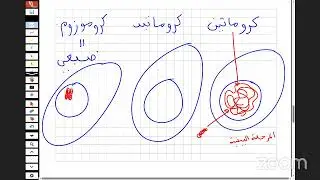 كروماتين كروماتيد كروموزوم
=
صبغي
المرحلة البينية
zoom